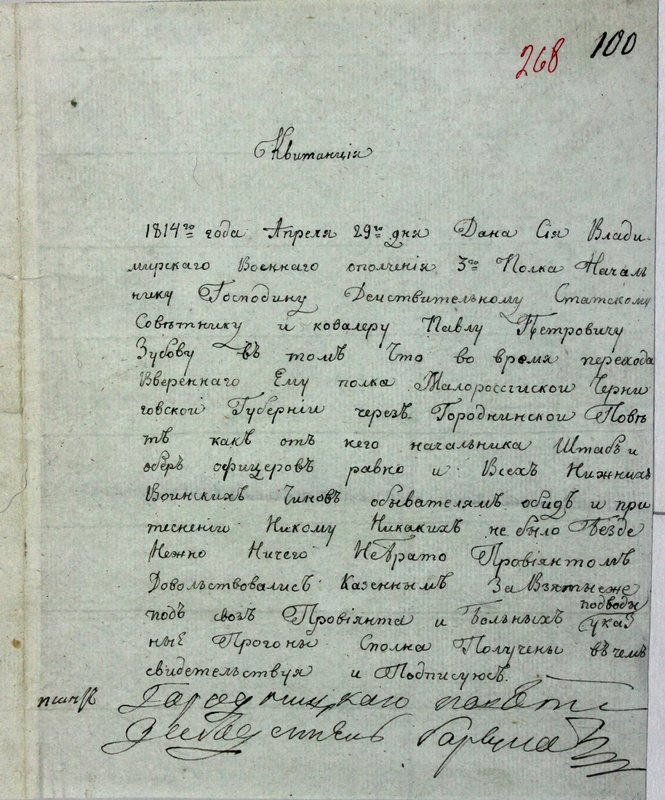 268 100
Квитанція
1814го года Апреля 29го дня Дана Сія Влади-
мирскаго Военнаго ополченія 3го Полка Началь
нику Господину Действительному Статскому
Совѣтнику и ковалеру Павлу Петровичу
Зубову въ томъ Что во время перехода
Ввереннаго Ему полка Малороссгиской Черни
говской Губерніи чрезъ Городнинской Повѣ
тъ какъ отъ него начальника Штабъ и
оберъ офицеровъ равно и Всехъ Нижнихъ
Воинскихъ Чиновъ обывателямъ обидъ и при
тесненіи Никому Никакихъ не было Безде
нежно Ничего Небрато Провіянтомъ
Довольствовались Казеннымъ За Взятыеже
подъ свозъ Провіянта и Больныхъ подводы указ
ные Прогоны Сполна Получены въ чемъ
свидетельствуя и Подписуюсь
Городницкаго повѣта